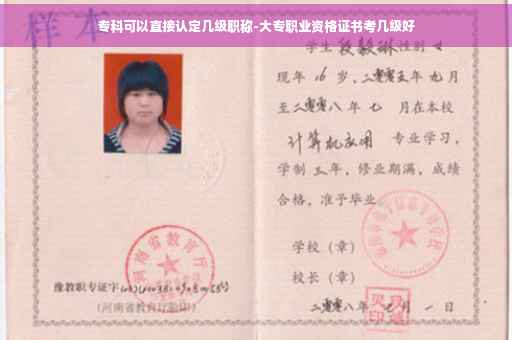 专科可以直接认定几级职称-大专职业资格证书考几级好
样本
学生 段毅琳 性别 女
现年 16 岁，二零零五年 九月
至二零零八年 七 月在本校
计算机应用 专业学习，
学制 三年，修业期满，成绩
合格，准予毕业。
学校（章）
校长（章）
二零零八年 七 月 一 日
河南省教育厅
豫教职专证字
(河南省教育厅验印)